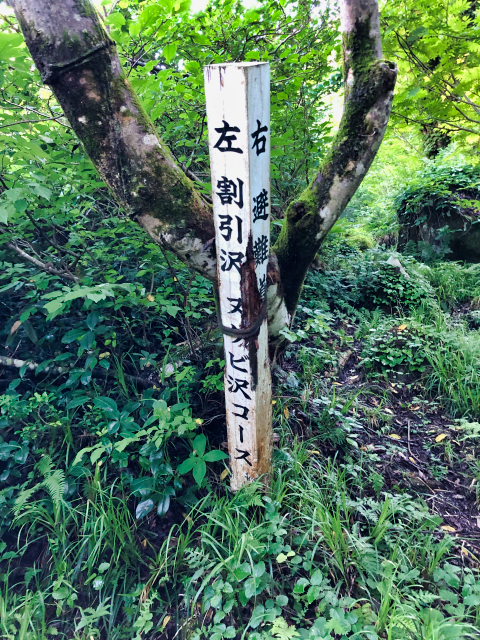 左 割引沢 ヌクビ沢コース
右 避難